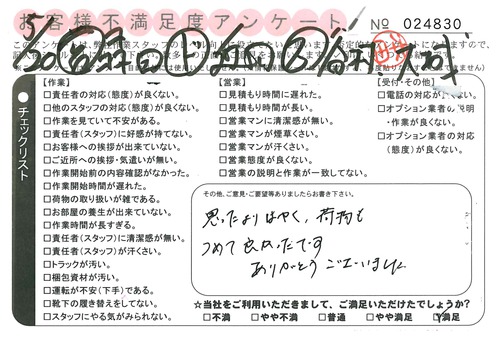 お客様不満足度アンケート
No 024830
5/
チェックリスト
【作業】
□責任者の対応(態度)が良くない。
□他のスタッフの対応(態度)が良くない。
□作業を見ていて不安がある。
□責任者(スタッフ)に好感が持てない。
□お客様への挨拶が出来ていない。
□ご近所への挨拶・気遣いが無い。
□作業開始前の内容確認がなかった。
□作業開始時間が遅れた。
□荷物の取り扱いが雑である。
□お部屋の養生が出来ていない。
□作業時間が長すぎる。
□責任者(スタッフ)に清潔感が無い。
□責任者(スタッフ)が汗くさい。
□トラックが汚い。
□梱包資材が汚い。
□運転が不安(下手)である。
□靴下の履き替えをしてない。
□スタッフにやる気がみられない。
【営業】
□見積もり時間に遅れた。
□見積もり時間が長い。
□営業マンに清潔感が無い。
□営業マンが煙草くさい。
□営業マンが汗くさい。
□営業態度が良くない。
□営業の説明と作業が一致してない。
【受付・その他】
□電話の対応が
□オプション業者の説明
・作業が良くない。
□オプション業者の対応
(態度)が良くない。
その他、ご意見・ご要望等ありましたらお書き下さい。
思ったよりはやく、荷物も
つめて良かったです
ありがとうございました
☆当社をご利用いただきまして、ご満足いただけたでしょうか?
□不満 □やや不満 □普通 □やや満足 ☑満足